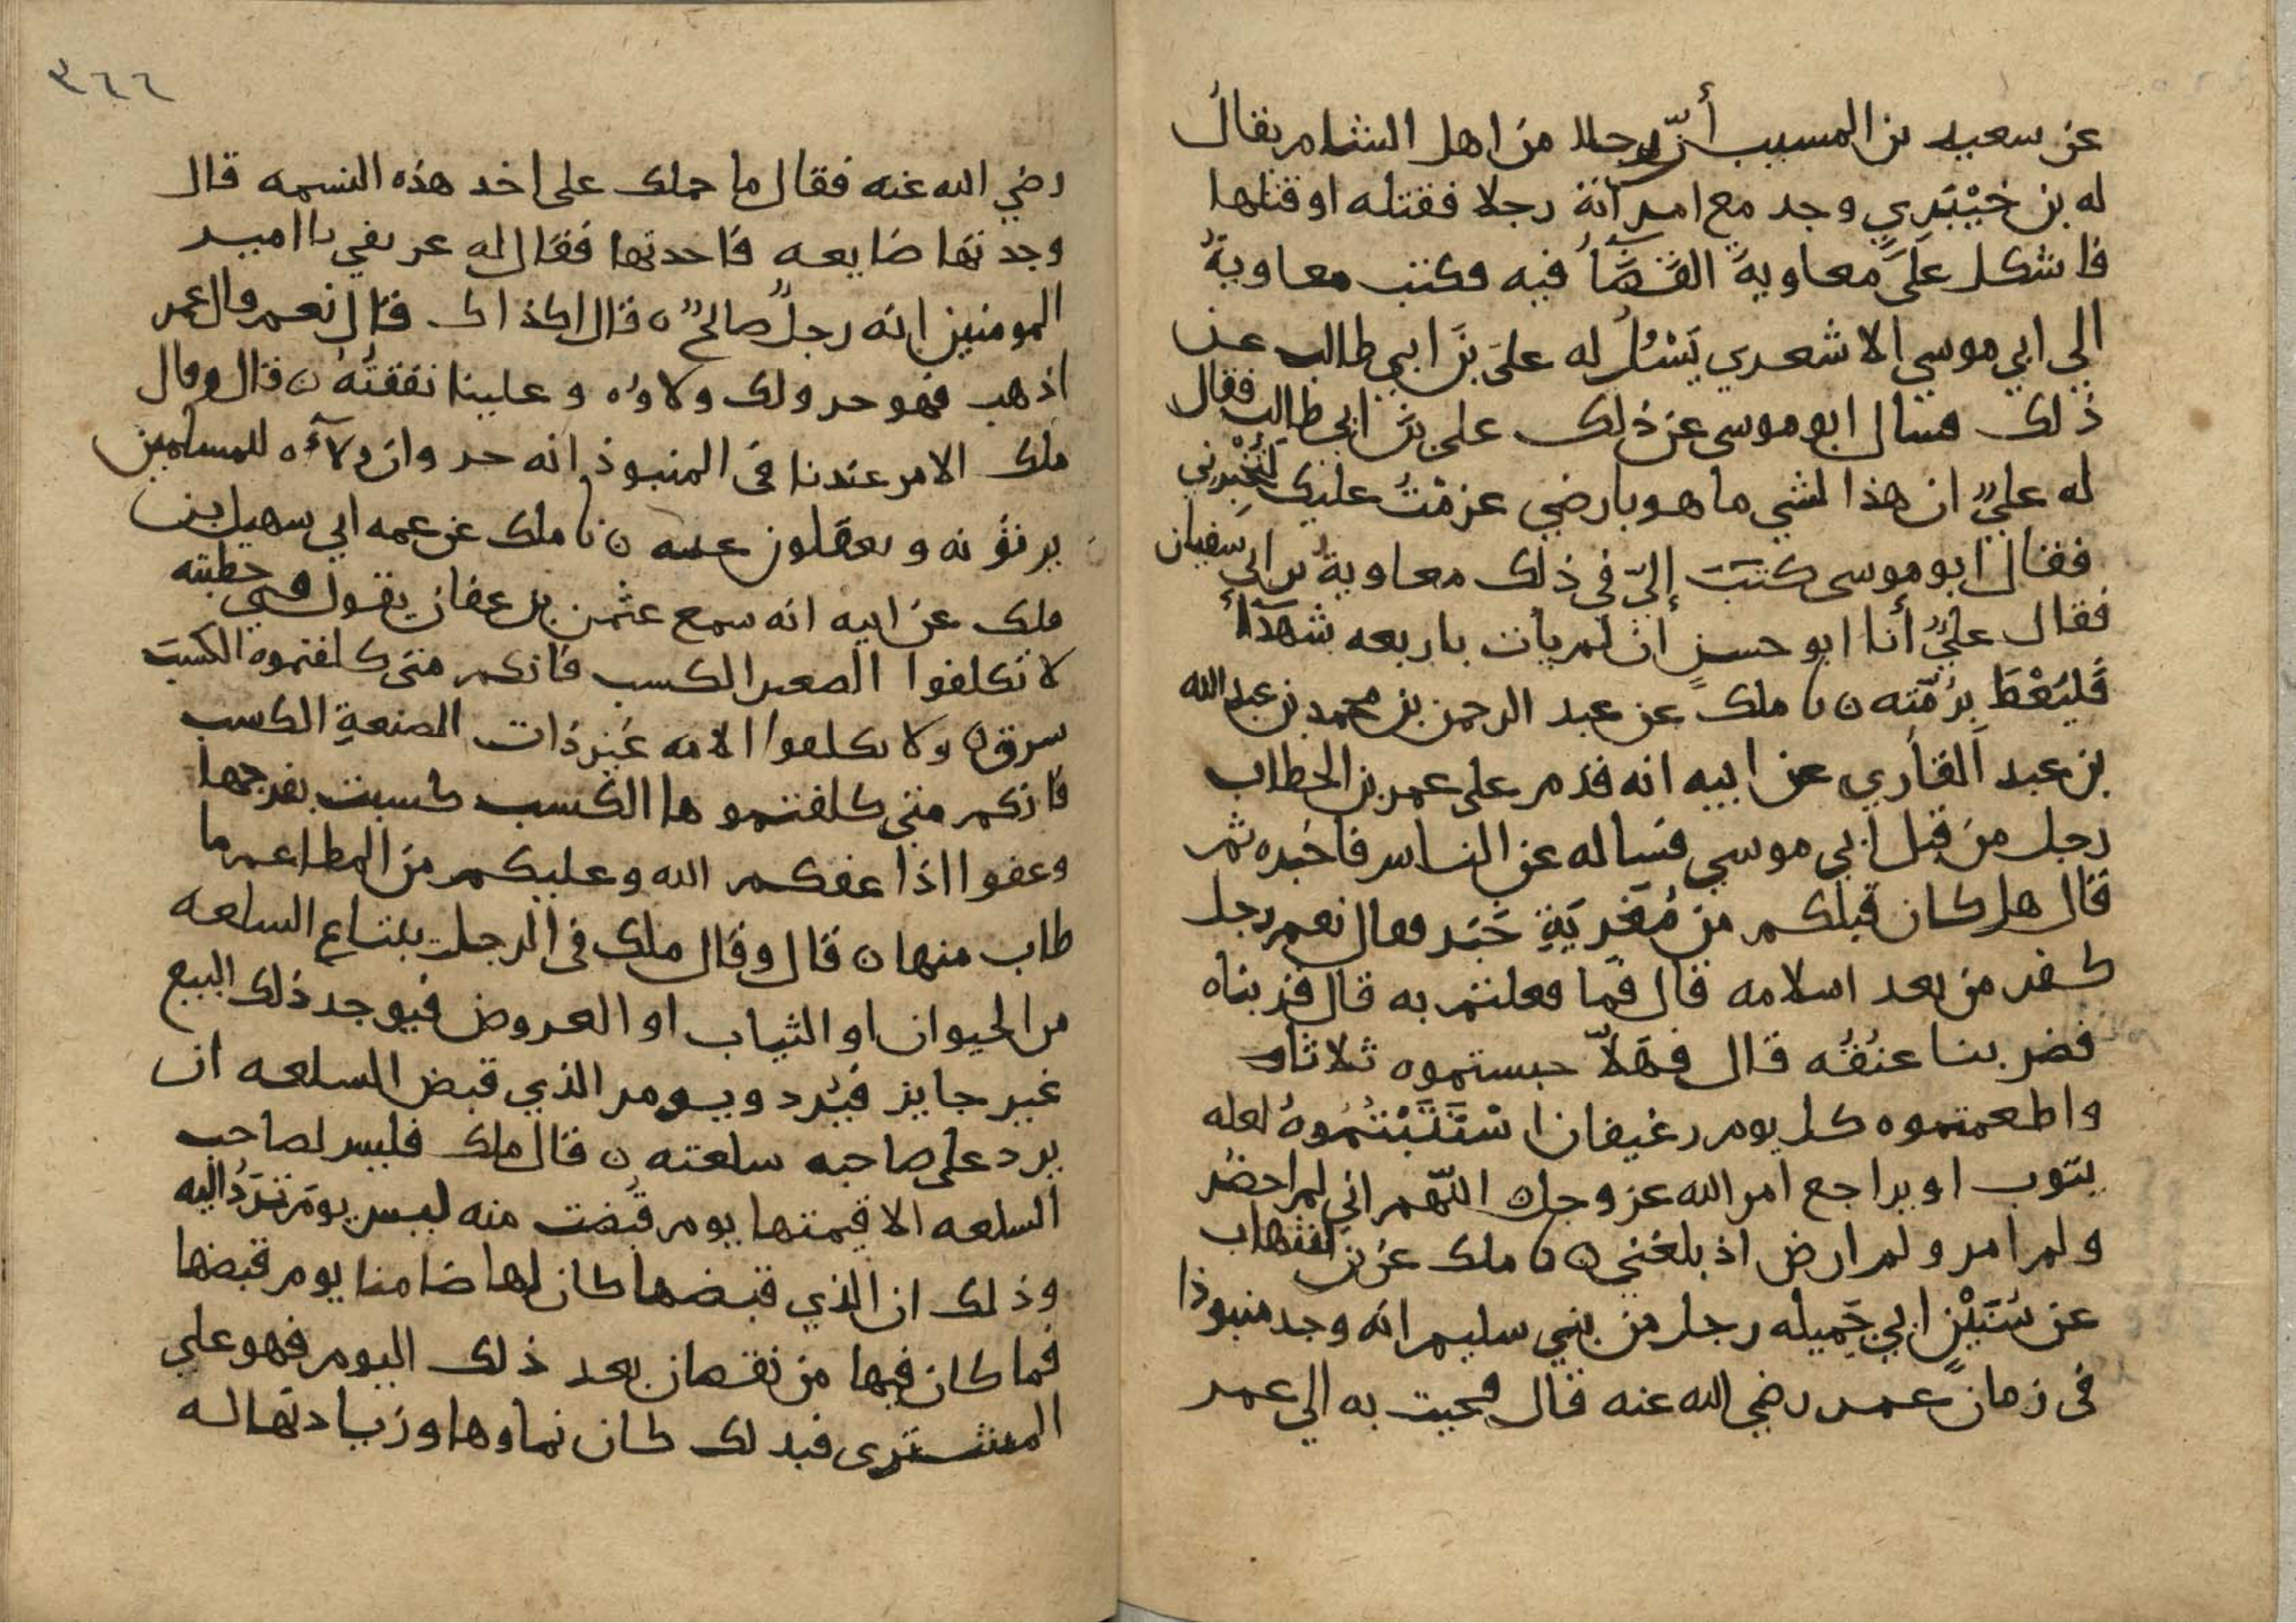 عن سعيد بن المسيب أنّ رجلا من اهل الشام يقالُ
له بن خَيْبَري وجد مع امرآته رجلا فقتله او قتلها
فاشكل عَلَى معاويةَ القَضَآُ فيه فكتب معاويةُ
الي ابي موسي الاشعري يَسْئلُ له علىَ بنَ ابي طالب عن
ذلك فسال ابو موسى عن ذلك علي بن ابي طالب فقال
له عليٌ ان هذا لشي ما هو بارضي عزمْتُ عليك لَتُخْبِرني
فقال ابو موسى كتبَ إليّ في ذلك معاويةُ بن ابي سفيان
فقال عليٌ أنا ابو حسنٍ ان لم يات باربعه شهدآأ
فَليُعْطَ بِرُمّتِه ن نا ملك عن عبد الرحمن بن محمد بن عبد الله
بن عبد القاري عن ابيه انه قدم على عمر بن الخطاب
رجل من قِبَل ابي موسي فساله عن الناس فاخبره ثم
قال هل كان قبلكم من مُغَرِيَةِ خَبَر فقال نعم رجل
كفر من بعد اسلامه قال فما فعلتم به قال قربناه
فضربنا عنُقُه قال فهَلاّ حبستموه ثلاثا
واطعمتموه كل يوم رغيفا واسْتَتَبْتُمُوهُ لعله
يتوب او يراجع امر الله عز وجل ن اللّهم اني لم احضر
ولم امر ولم ارض اذ بلغني ن نا ملك عن بن شهاب
عن سُنَيْنٍ ابي جَميله رجل من بني سليم انه وجد منبوذا
في زمان عمر رضي الله عنه قال فجيت به الي عمر
٣٦٦
رضي الله عنه فقال ما حملك على اخد هذه النسمه قال
وجدتها ضايعه فاخدتها فقال له عريفي يا امير
المومنين انه رجلٌ صالحٌ ن قال اكذاك قال نعم قال عمر
اذهب فهو حر ولك ولاوه وعلينا نفقتُهُ ن قال وقال
ملك الامر عندنا في المنبوذ انه حر وان ولآءه للمسلمين
يرثونه ويعقلون عنه ن نا ملك عن عمه ابي سهيل بن
ملك عن ابيه انه سمع عثمن بن عفان يقول في خطبته
لا تكلفوا الصغير الكسب فانكم متى كلفتموه الكسبَ
سرق ن ولا تكلفوا الامه غيْر ذات الصنعةِ الكسب
فانكم متى كلفتموها الكسب كسبت بفرجها
وعفوا اذا عفكم الله وعليكم من المطاعم ما
طاب منها ن قال وقال ملك في الرجل يبتاع السلعه
من الحيوان او الثياب او العروض فيوجد ذلك البيع
غير جايز فيُرد ويومر الذي قبض السلعه ان
يرد على صاحبه سلعته ن قال ملك فليس لصاحب
السلعه الا قيمتها يوم قُبضت منه ليس يوم تُرَدُ اليه
وذلك ان الذي قبضها كان لها ضامنا يوم قبضها
فما كان فيها من نقصان بعد ذلك اليوم فهو علي
المشترى فبدلك كان نماوها وزيادتها له